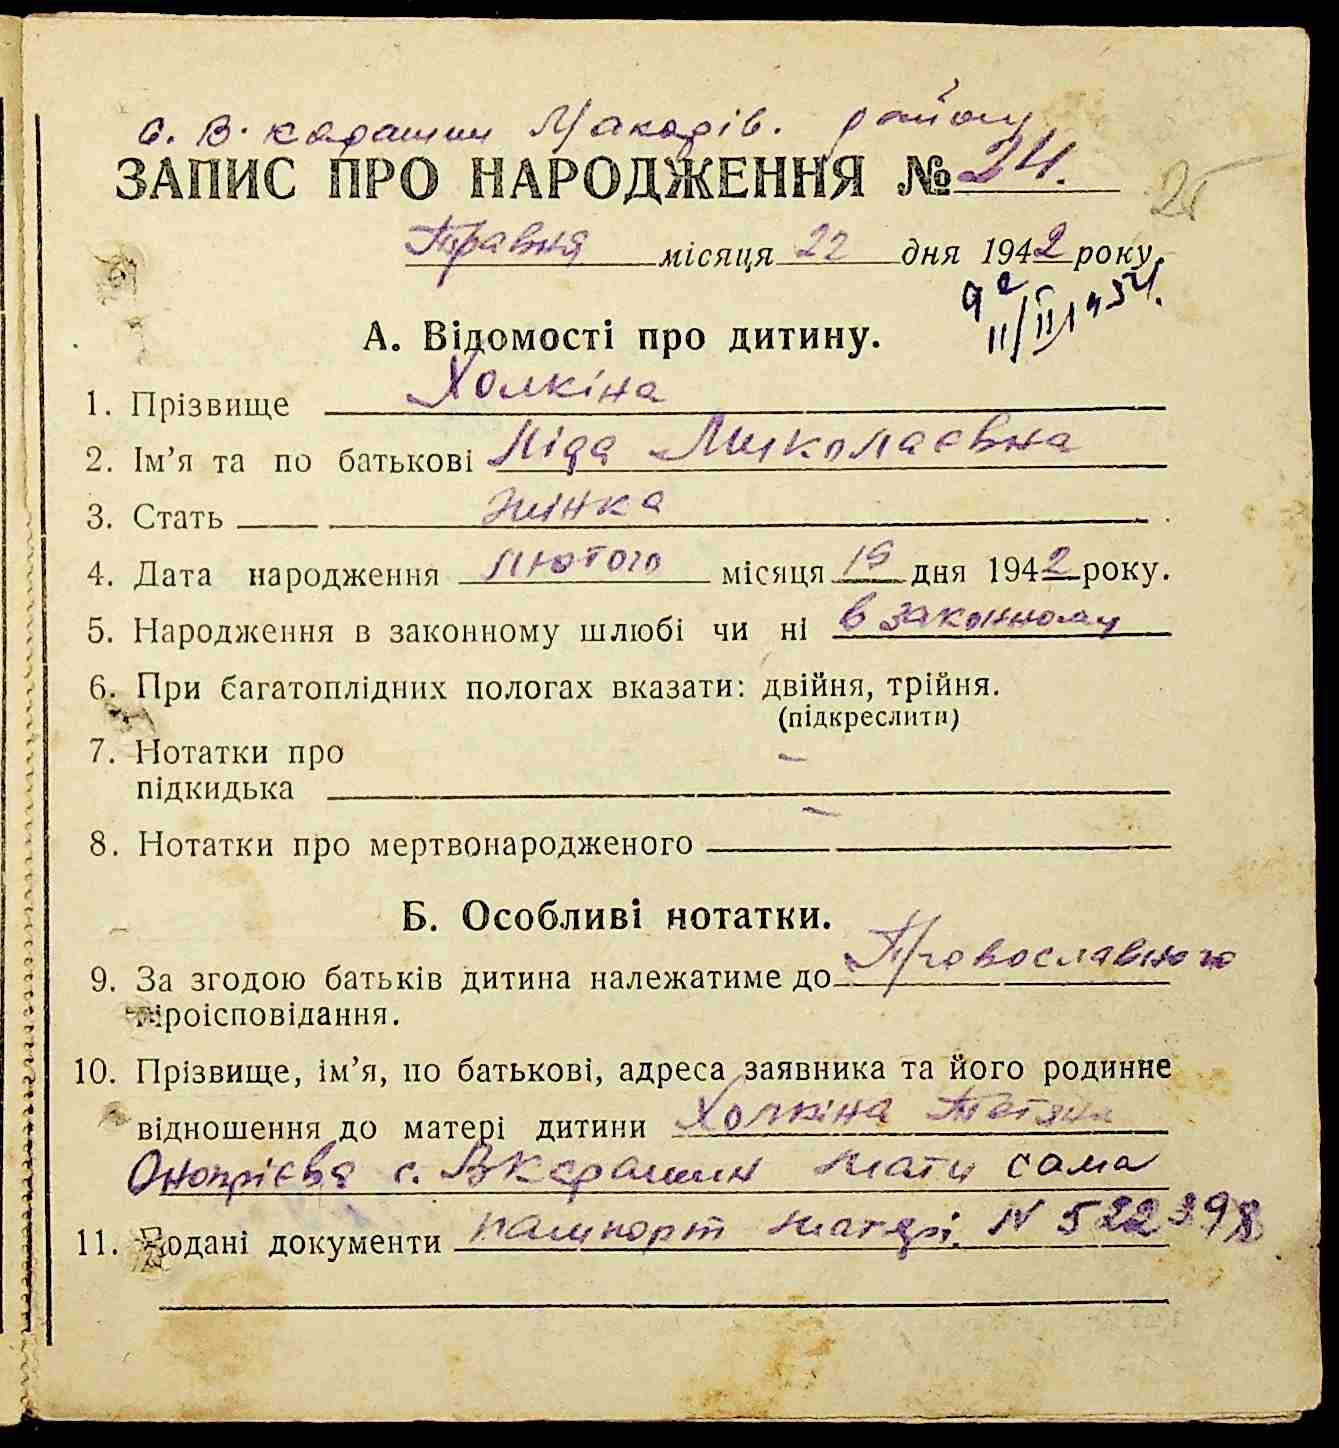 с. В. Карашин Макарів. району
ЗАПИС ПРО НАРОДЖЕННЯ № 24.
25
Травня місяця 22 дня 1942 року.
11/II 1954.
А. Відомості про дитину.
1. Прізвище Холкіна
2. Ім’я та по батькові Ліда Миколаєвна
3. Стать жінка
4. Дата народження лютого місяця 15 дня 1942 року.
5. Народження в законному шлюбі чи ні в законному
6. При багатоплідних пологах вказати: двійня, трійня.
(підкреслити)
7. Нотатки про
підкидька –
8. Нотатки про мертвонародженого –
Б. Особливі нотатки.
9. За згодою батьків дитина належатиме до Провославного
віроісповідання.
10. Прізвище, ім’я, по батькові, адреса заявника та його родинне
відношення до матері дитини Холкіна Тетяна
Онопрієва с. В Карашин мати сама
11. Подані документи пашпорт матері N 522398